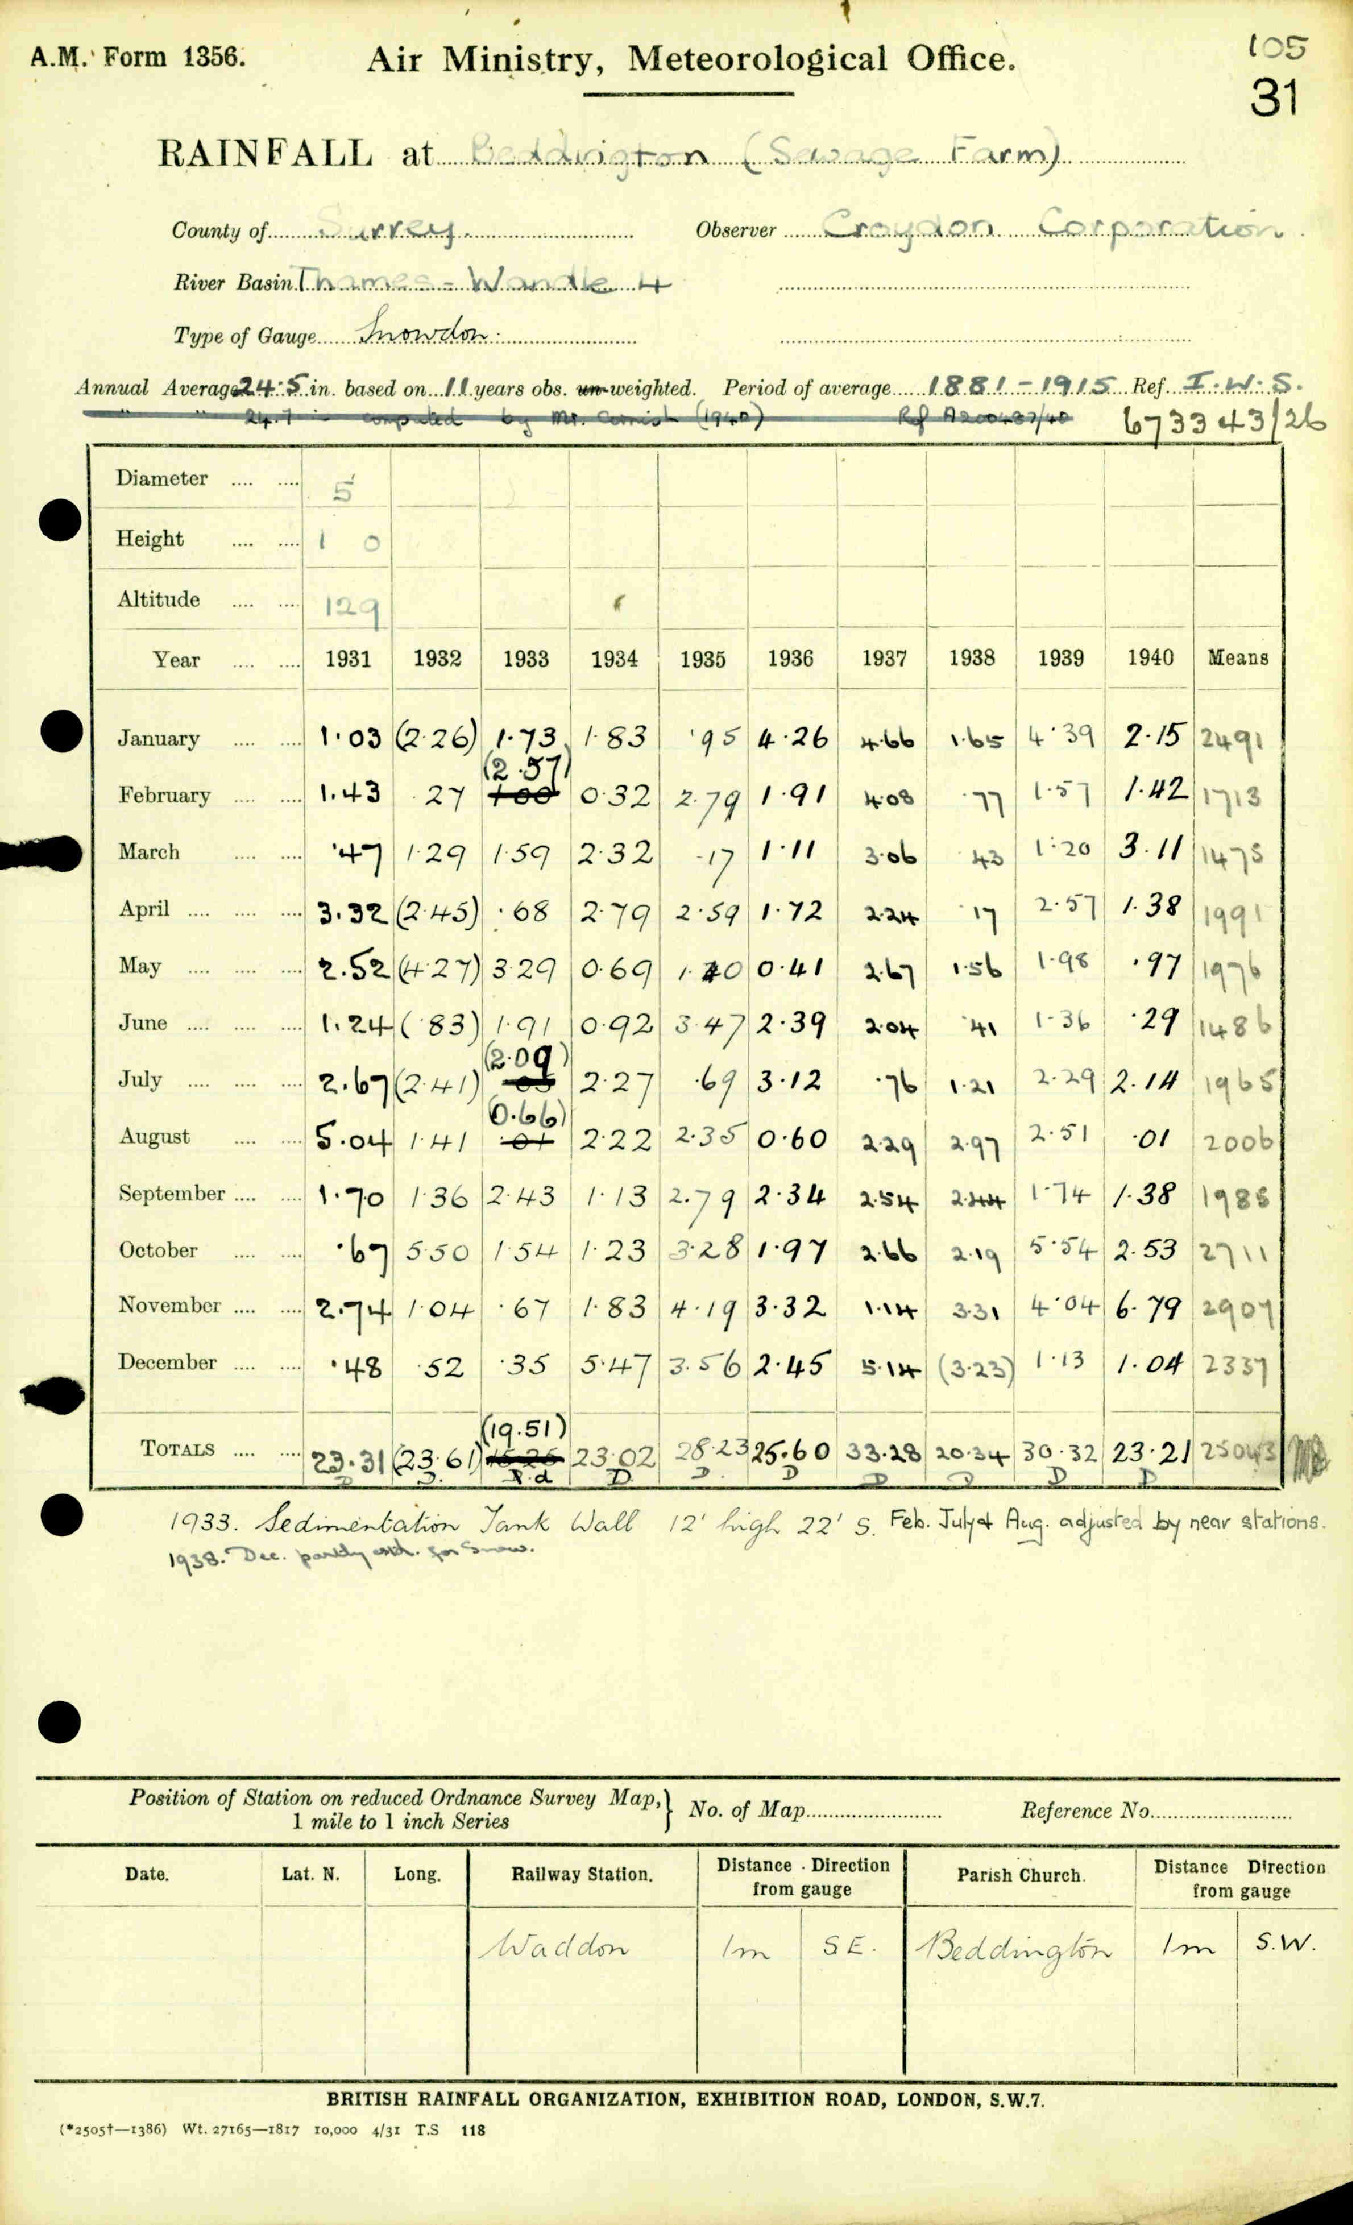 A.M. Form 1356. Air Ministry, Meteorological Office. 105
31
RAINFALL at Beddington (Sewage Farm)
County of Surrey. Observer Croydon Corporation.
River Basin Thames - Wandle 4
Type of Gauge Snowdon.
Annual Average 24.5 in. based on 11 years obs. un-weighted. Period of average 1881-1915 Ref. I.W.S.
" " 24.7 in computed by Mr. Cornish (1940) Ref A200487/40 673343/26
Diameter .... .... 5
Height .... .... 1 0
Altitude .... .... 129
Year .... .... 1931 1932 1933 1934 1935 1936 1937 1938 1939 1940 Means
January .... .... 1.03 (2.26) 1.73 1.83 .95 4.26 4.66 1.65 4.39 2.15 2491
(2.57)
February .... .... 1.43 .27 1.00 0.32 2.79 1.91 4.08 .77 1.57 1.42 1713
March .... .... .47 1.29 1.59 2.32 .17 1.11 3.06 .43 1.20 3.11 1475
April .... .... .... 3.32 (2.45) .68 2.79 2.59 1.72 2.24 .17 2.57 1.38 1991
May .... .... .... 2.52 (4.27) 3.29 0.69 1.40 0.41 2.67 1.56 1.98 .97 1976
June .... .... .... 1.24 (.83) 1.91 0.92 3.47 2.39 2.04 .41 1.36 .29 1486
(2.09)
July .... .... .... 2.67 (2.41) .03 2.27 .69 3.12 .76 1.21 2.29 2.14 1965
(0.66)
August .... .... 5.04 1.41 .01 2.22 2.35 0.60 2.29 2.97 2.51 .01 2006
September .... .... 1.70 1.36 2.43 1.13 2.79 2.34 2.54 2.44 1.74 1.38 1985
October .... .... .67 5.50 1.54 1.23 3.28 1.97 2.66 2.19 5.54 2.53 2711
November .... .... 2.74 1.04 .67 1.83 4.19 3.32 1.14 3.31 4.04 6.79 2907
December .... .... .48 .52 .35 5.47 3.56 2.45 5.14 (3.23) 1.13 1.04 2337
(19.51)
TOTALS .... .... 23.31 (23.61) 15.25 23.02 28.23 25.60 33.28 20.34 30.32 23.21 25043
D D. P.d D D. D D D D D
1933. Sedimentation Tank Wall 12' high 22' S. Feb. July & Aug. adjusted by near stations.
1938. Dec. partly est. for snow.
Position of Station on reduced Ordnance Survey Map, } No. of Map Reference No.
1 mile to 1 inch Series
Date. Lat. N. Long. Railway Station. Distance Direction from gauge Parish Church. Distance Direction from gauge
Waddon 1m S E. Beddington 1m S.W.
BRITISH RAINFALL ORGANIZATION, EXHIBITION ROAD, LONDON, S.W.7.
(*2505†—1386) Wt. 27165—1817 10,000 4/31 T.S 118